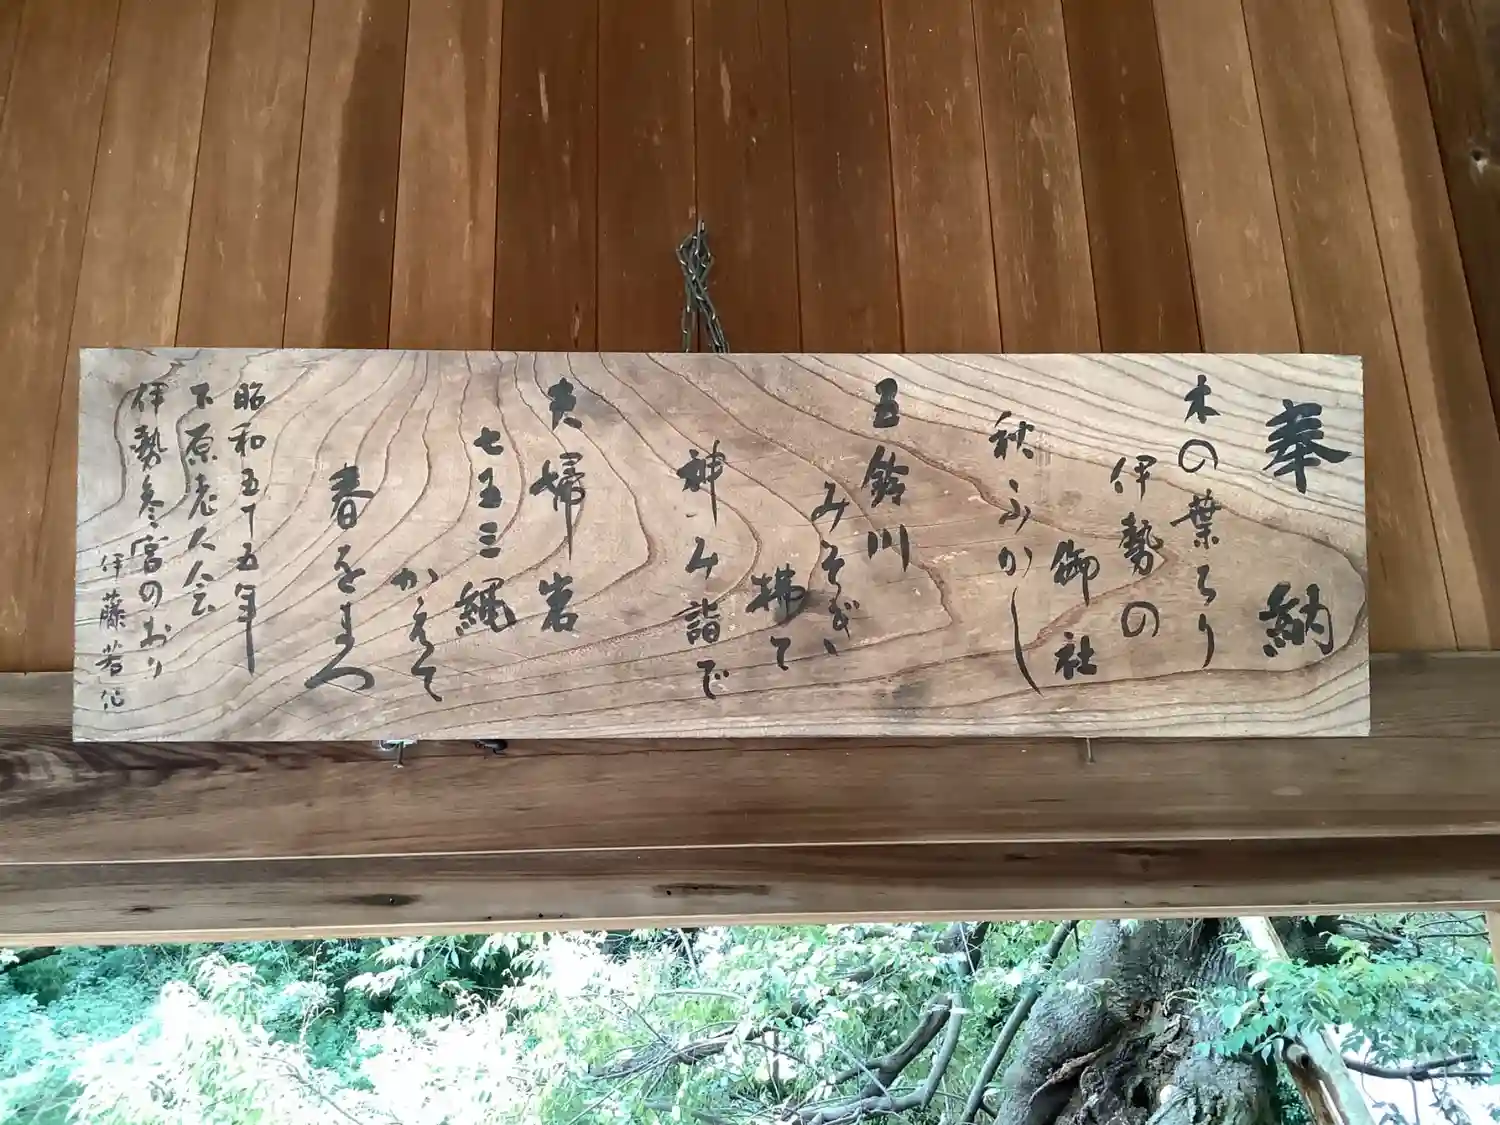 奉納
木の葉ちり
伊勢の
御社
秋ふかし
五鈴川
みそぎゝ
拂て
神み詣で
夫婦岩
七五三縄
かえて
春をまつ
昭和五十五年
下原老人会
伊勢参宮のおり
伊藤若